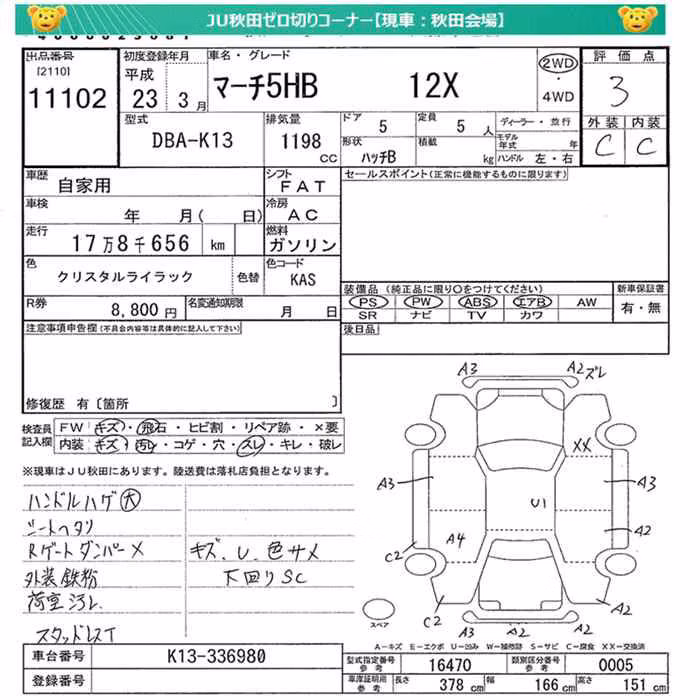 JU秋田ゼロ切りコーナー【現車：秋田会場】
出品番号
[2110]
11102
初度登録年月
平成
23 3月
車名・グレード
マーチ5HB 12X
2WD
・
4WD
評価点
3
外装 内装
C C
型式
DBA-K13
排気量
1198
cc
ドア 5
定員 5人
ディーラー・並行
形状 ハッチB
積載 kg
モデル年式 年
ハンドル 左・右
車歴
自家用
シフト
FAT
セールスポイント(正常に機能するものに限ります)
車検
年 月( 日)
冷房
AC
走行
17万8千656 km
燃料
ガソリン
色
クリスタルライラック
色替
色コード
KAS
装備品 (純正品に限り○をつけてください)
新車保証書
PS PW ABS エアB AW
有・無
SR ナビ TV カワ
R券
8,800円
名変通知期限
月 日
後日品
注意事項申告欄(不具合内容等は具体的に記入して下さい)
修復歴 有〔箇所 〕
検査員
記入欄
FW キズ・飛石・ヒビ割・リペア跡・×要
内装 キズ・汚レ・コゲ・穴・スレ・キレ・破レ
※現車はJU秋田にあります。陸送費は落札店負担となります。
ハンドルハゲ大
シートヘタリ
Rゲートダンパー×
キズ、U、色サメ
外装鉄粉
下回りSC
荷室汚レ
スタッドレス
A3
A2 ズレ
XX
A3
A3
U1
A2
A4
C2
C2
A3
A2
A2
スペア
A－キズ E－エクボ U－凹み W－補修跡 S－サビ C－腐食 XX－交換済
車台番号
K13-336980
登録番号
型式指定番号
参考
16470
類別区分番号
参考
0005
車庫証明用
参考
長さ 378 cm
幅 166 cm
高さ 151 cm